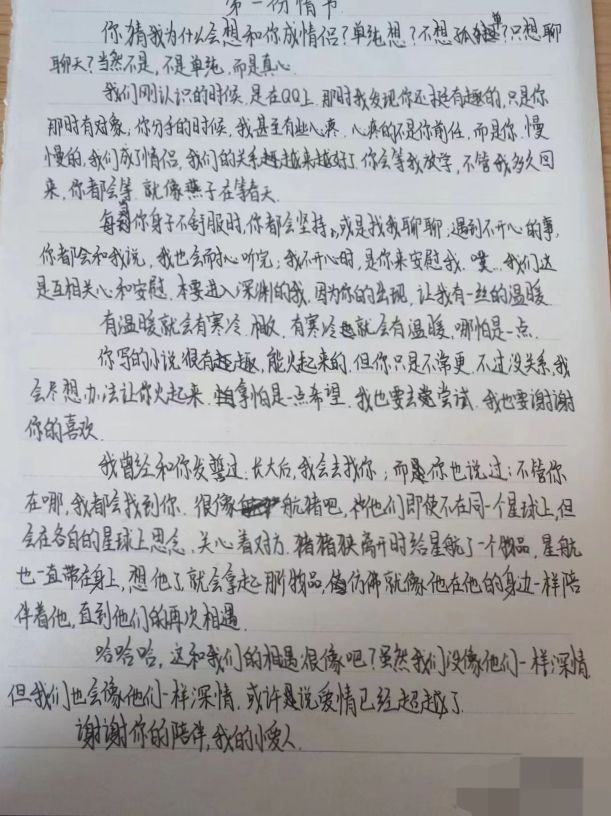 第一份情书
你猜我为什么会想和你成情侣?单纯想?不想孤单?只想聊
聊天?当然不是,不是单纯,而是真心.
我们刚认识的时候.是在QQ上.那时我发现你还挺有趣的,只是你
那时有对象,你分手的时候,我甚至有些心疼.心疼的不是你前任,而是你.慢
慢的,我们成了情侣.我们的关系越来越好了.你会等我放学,不管我多久回
来,你都会等.就像燕子在等春天.
每当你身子不舒服时,你都会坚持,或是找我聊聊;遇到不开心的事,
你都会和我说,我也会耐心听完;我不开心时,是你来安慰我.噗...我们这
是互相关心和安慰.本要进入深渊的我,因为你的出现,让我有一丝的温暖.
有温暖就会有寒冷.有寒冷就会有温暖,哪怕是一点.
你写的小说很有趣,能火起来的,但你只是不常更.不过没关系,我
会尽想办法让你火起来.拿怕是一点希望.我也要去尝试.我也要谢谢
你的喜欢.
我曾经和你发誓过:长大后,我会去找你;而你也说过:不管你
在哪,我都会找到你.很像航猪吧,他们即使不在同一个星球上,但
会在各自的星球上思念、关心着对方.猪猪侠离开时给星航了一个物品,星航
也一直带在身上,想他了就会拿起那物品,仿佛就像他在他的身边一样陪
伴着他,直到他们的再次相遇.
哈哈哈,这和我们的相遇很像吧?虽然我们没像他们一样深情.
但我们也会像他们一样深情.或许是说爱情已经超越了.
谢谢你的陪伴,我的小爱人.